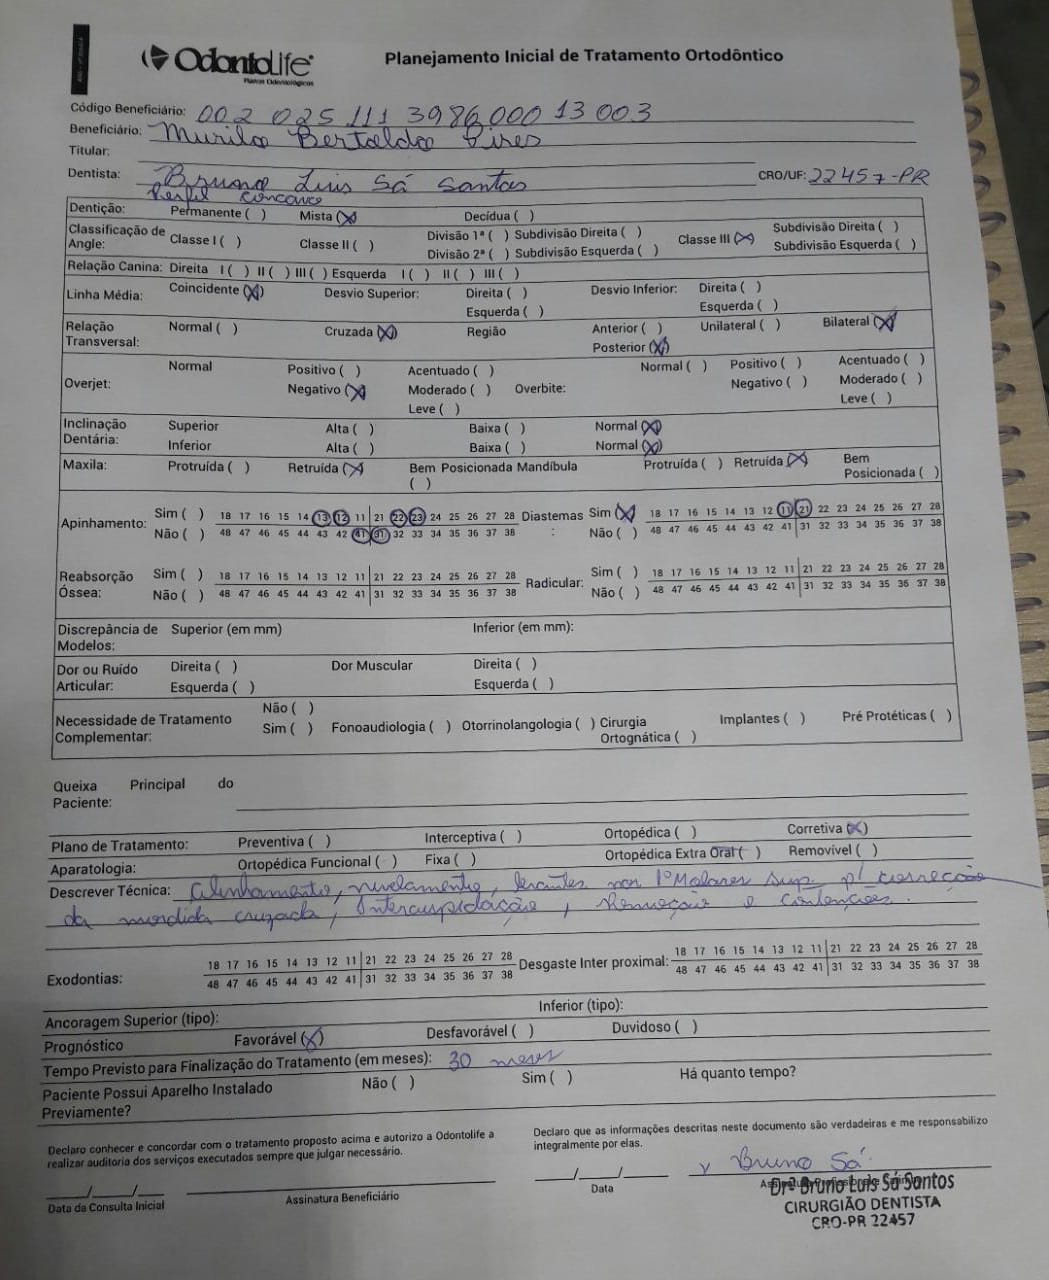 OdontoLife
Planos Odontológicos
Planejamento Inicial de Tratamento Ortodôntico
Código Beneficiário: 002 025 111 3986 000 13 003
Beneficiário: Murilo Bertoldo Pires
Titular:
Dentista: Bruno Luis Sá Santos CRO/UF: 22457-PR
Perfil concavo
Dentição: Permanente ( ) Mista (X) Decídua ( )
Classificação de Angle: Classe I ( ) Classe II ( ) Divisão 1ª ( ) Subdivisão Direita ( ) Classe III (X) Subdivisão Direita ( )
Divisão 2ª ( ) Subdivisão Esquerda ( ) Subdivisão Esquerda ( )
Relação Canina: Direita I ( ) II ( ) III ( ) Esquerda I ( ) II ( ) III ( )
Linha Média: Coincidente (X) Desvio Superior: Direita ( ) Desvio Inferior: Direita ( )
Esquerda ( ) Esquerda ( )
Relação Transversal: Normal ( ) Cruzada (X) Região Anterior ( ) Unilateral ( ) Bilateral (X)
Posterior (X)
Overjet: Normal Positivo ( ) Acentuado ( ) Overbite: Normal ( ) Positivo ( ) Acentuado ( )
Negativo (X) Moderado ( ) Negativo ( ) Moderado ( )
Leve ( ) Leve ( )
Inclinação Dentária: Superior Alta ( ) Baixa ( ) Normal (X)
Inferior Alta ( ) Baixa ( ) Normal (X)
Maxila: Protruída ( ) Retruída (X) Bem Posicionada ( ) Mandíbula Protruída ( ) Retruída (X) Bem Posicionada ( )
Apinhamento: Sim ( ) 18 17 16 15 14 13 12 11 21 22 23 24 25 26 27 28 Diastemas: Sim (X) 18 17 16 15 14 13 12 11 21 22 23 24 25 26 27 28
Não ( ) 48 47 46 45 44 43 42 41 31 32 33 34 35 36 37 38 Não ( ) 48 47 46 45 44 43 42 41 31 32 33 34 35 36 37 38
Reabsorção Óssea: Sim ( ) 18 17 16 15 14 13 12 11 21 22 23 24 25 26 27 28 Radicular: Sim ( ) 18 17 16 15 14 13 12 11 21 22 23 24 25 26 27 28
Não ( ) 48 47 46 45 44 43 42 41 31 32 33 34 35 36 37 38 Não ( ) 48 47 46 45 44 43 42 41 31 32 33 34 35 36 37 38
Discrepância de Modelos: Superior (em mm) Inferior (em mm):
Dor ou Ruído Articular: Direita ( ) Dor Muscular Direita ( )
Esquerda ( ) Esquerda ( )
Necessidade de Tratamento Complementar: Não ( )
Sim ( ) Fonoaudiologia ( ) Otorrinolangologia ( ) Cirurgia Ortognática ( ) Implantes ( ) Pré Protéticas ( )
Queixa Principal do Paciente:
Plano de Tratamento: Preventiva ( ) Interceptiva ( ) Ortopédica ( ) Corretiva (X)
Aparatologia: Ortopédica Funcional ( ) Fixa ( ) Ortopédica Extra Oral ( ) Removível ( )
Descrever Técnica: alinhamento, nivelamento, levantes nos 1º Molares Sup. p/ correção
da mordida cruzada, Intercuspidação, Remoção e contenções.
Exodontias: 18 17 16 15 14 13 12 11 21 22 23 24 25 26 27 28 Desgaste Inter proximal: 18 17 16 15 14 13 12 11 21 22 23 24 25 26 27 28
48 47 46 45 44 43 42 41 31 32 33 34 35 36 37 38 48 47 46 45 44 43 42 41 31 32 33 34 35 36 37 38
Ancoragem Superior (tipo): Inferior (tipo):
Prognóstico Favorável (X) Desfavorável ( ) Duvidoso ( )
Tempo Previsto para Finalização do Tratamento (em meses): 30 meses
Paciente Possui Aparelho Instalado Previamente? Não ( ) Sim ( ) Há quanto tempo?
Declaro conhecer e concordar com o tratamento proposto acima e autorizo a Odontolife a
realizar auditoria dos serviços executados sempre que julgar necessário.
Declaro que as informações descritas neste documento são verdadeiras e me responsabilizo
integralmente por elas.
Bruno Sá
Data da Consulta Inicial
Assinatura Beneficiário
Data
Drº Bruno Luis Sá Santos
CIRURGIÃO DENTISTA
CRO-PR 22457